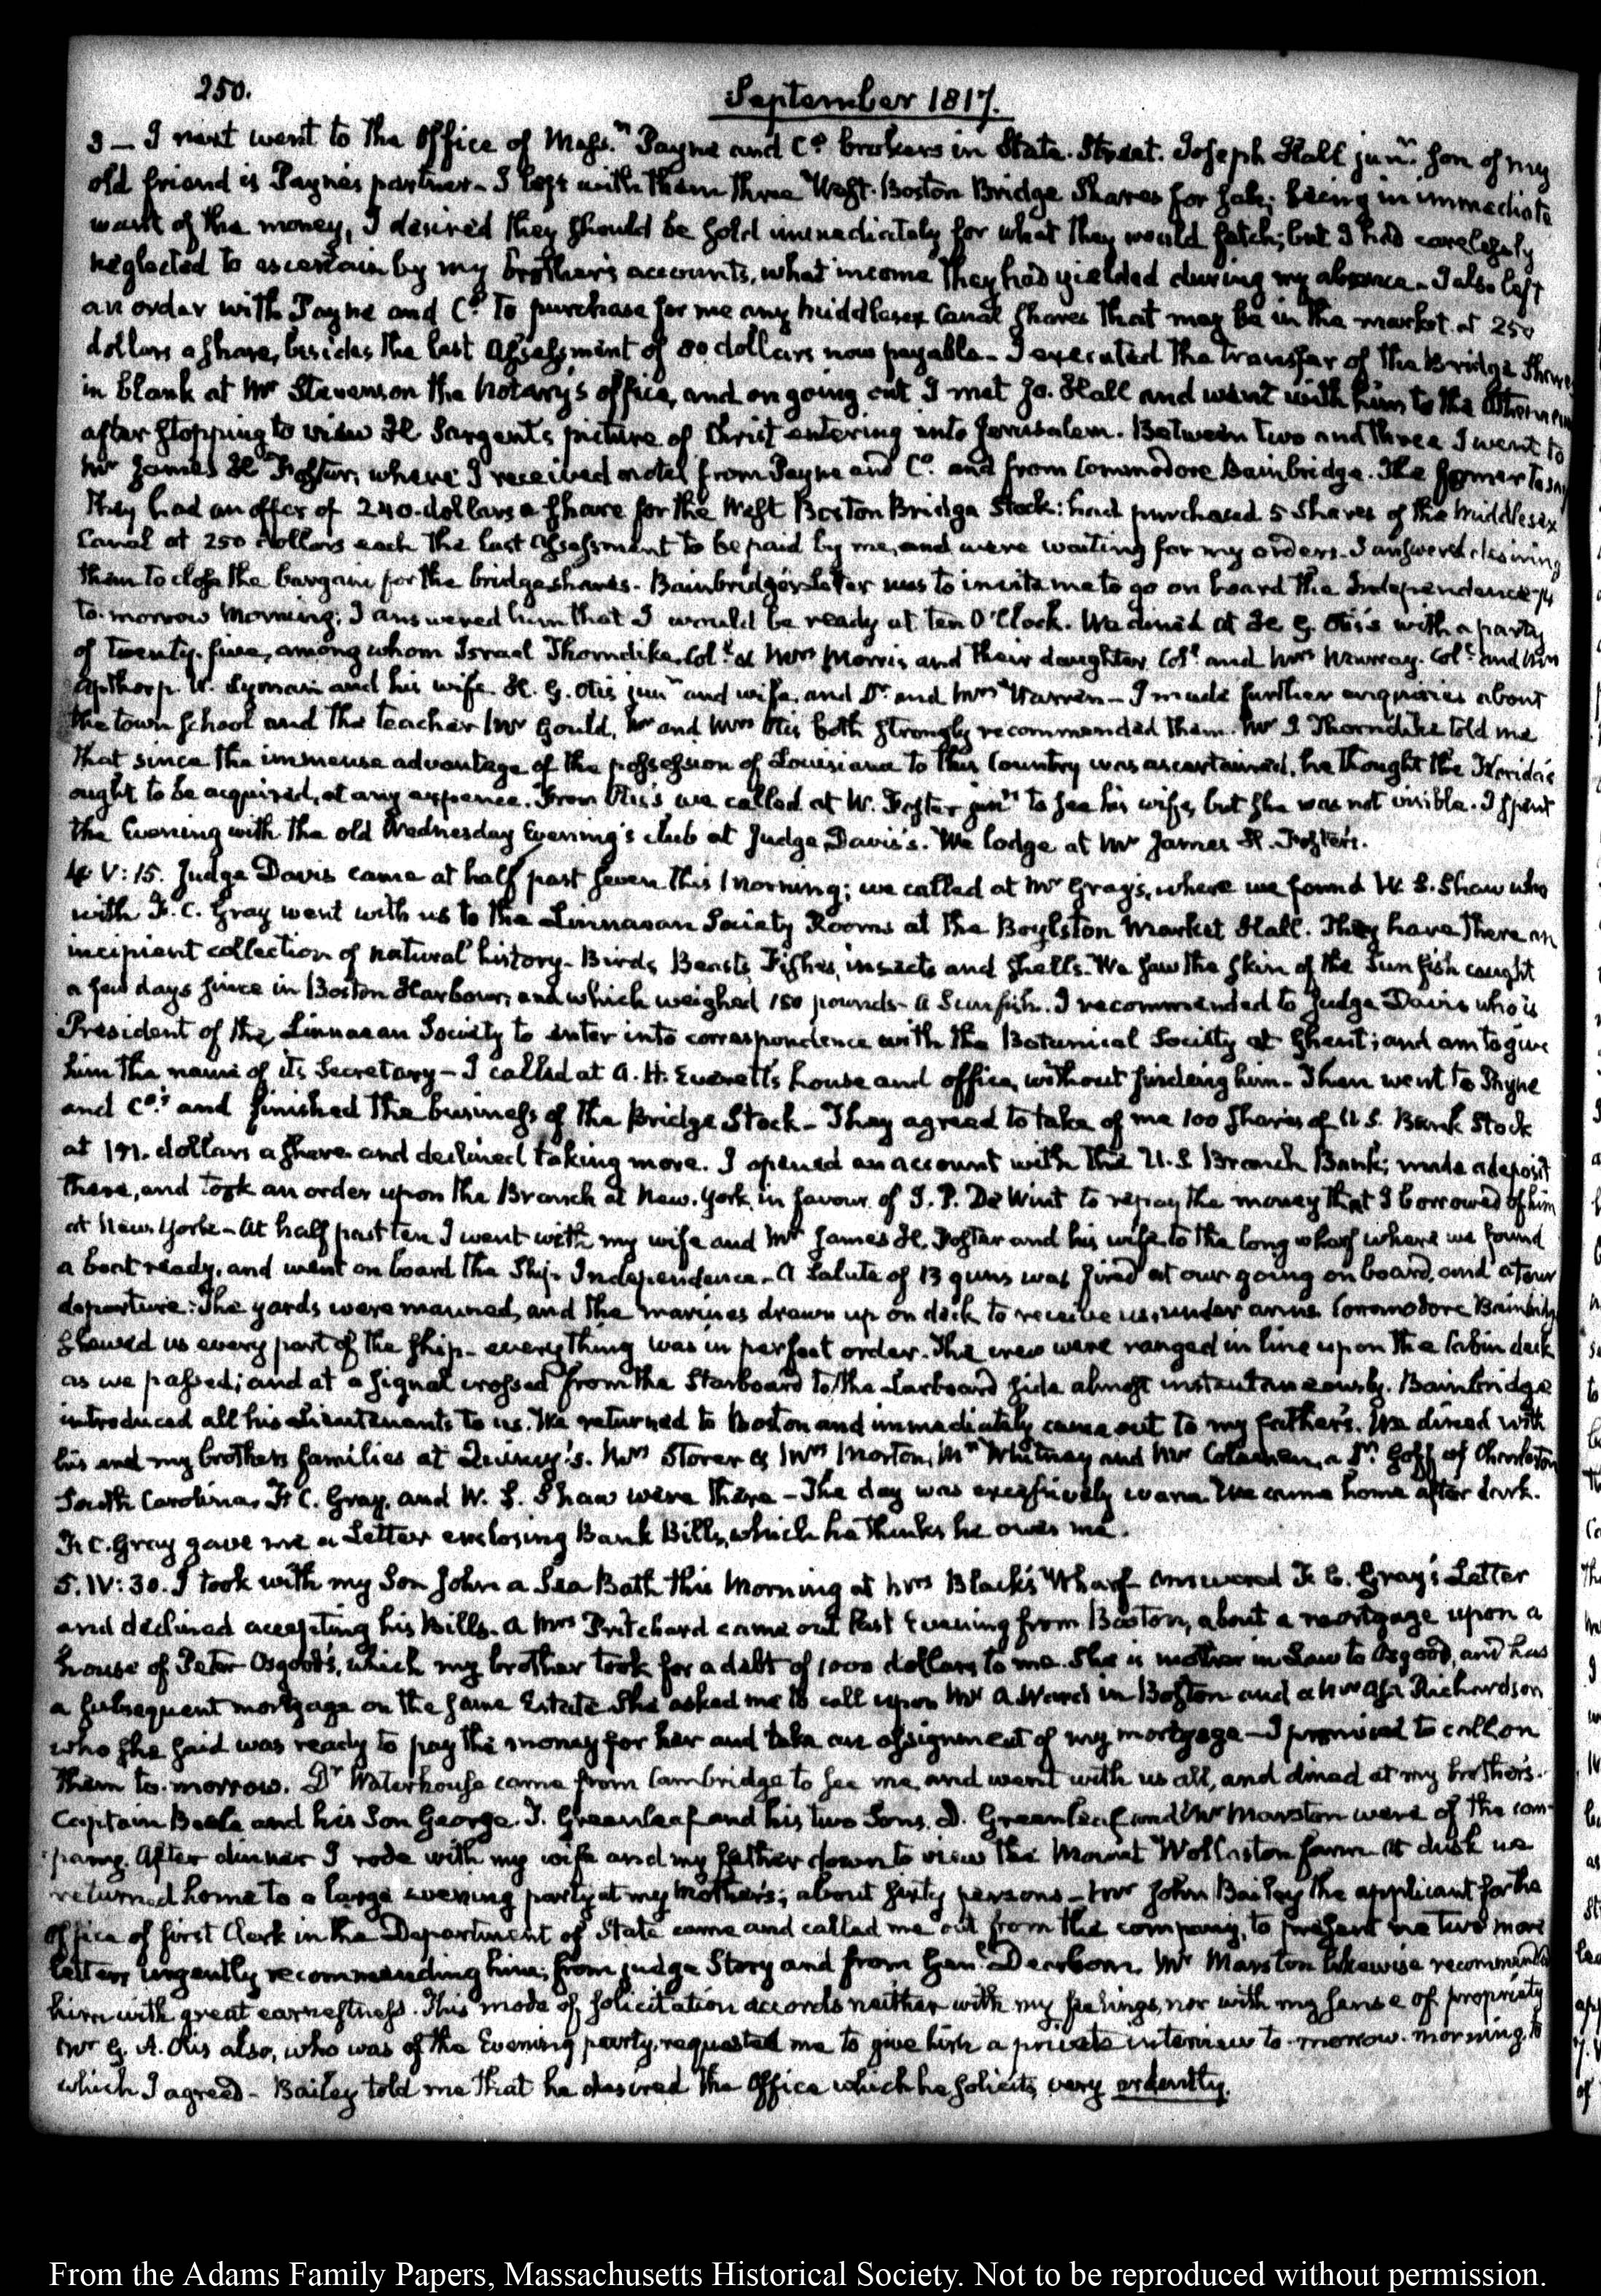 250.
September 1817.
3 — I next went to the Office of Messrs. Payne and Co. brokers in State-Street. Joseph Hall junr. son of my
old friend is Payne's partner — I left with them three West-Boston Bridge Shares for sale; being in immediate
want of the money, I desired they should be sold immediately for what they would fetch; but I had carelessly
neglected to ascertain by my brother's accounts, what income they had yielded during my absence — I also left
an order with Payne and Co. to purchase for me any Middlesex Canal shares that may be in the market at 250
dollars a share, besides the last assessment of 80 dollars now payable — I executed the transfer of the Bridge Shares
in blank at Mr Stevenson the Notary's office, and on going out I met Jo. Hall and went with him to the
after stopping to view H Sargent's picture of Christ entering into Jerusalem. Between two and three I went to
Mr James H Foster's, where I received notes from Payne and Co. and from Commodore Bainbridge. The former to say
they had an offer of 240 dollars a share for the West Boston Bridge Stock: had purchased 5 Shares of the Middlesex
Canal at 250 dollars each the last assessment to be paid by me, and were waiting for my orders. I answered desiring
them to close the bargain for the bridge shares. Bainbridge's Letter was to invite me to go on board the Independence 74
to-morrow Morning; I answered him that I would be ready at ten O'Clock. We dined at H. G. Otis's with a party
of twenty-five, among whom Israel Thorndike, Coll. & Mrs Morris and their daughter, Coll. and Mrs Murray. Coll. and Mrs
Apthorp. W. Lyman and his wife. H. G. Otis junr and wife, and Dr. and Mrs Warren — I made further enquiries about
the town School and the teacher Mr Gould, Mr and Mrs Otis both strongly recommended them. Mr I. Thorndike told me
that since the immense advantage of the possession of Louisiana to this Country was ascertained, he thought the Floridas
ought to be acquired, at any expence. From Otis's we called at W. Foster junrs to see his wife, but she was not visible. I spent
the Evening with the old Wednesday Evening's club at Judge Davis's. We lodge at Mr James H. Foster's.
4. V:15. Judge Davis came at half past seven this Morning; we called at Mr Gray's, where we found W. S. Shaw who
with F. C. Gray went with us to the Linnaean Society Rooms at the Boylston Market Hall. They have there an
incipient collection of natural history — Birds, Beasts, Fishes, insects and shells. We saw the skin of the Sun fish caught
a few days since in Boston Harbour, and which weighed 150 pounds — a Sun fish. I recommended to Judge Davis who is
President of the Linnaean Society to enter into correspondence with the Botanical Society at Ghent; and am to give
him the name of its Secretary — I called at A. H. Everett's house and office, without finding him — Then went to Payne
and Co.'s and finished the business of the Bridge Stock — They agreed to take of me 100 shares of U.S. Bank Stock
at dollars a share and declined taking more. I opened an account with the U.S. Branch Bank; made a deposit
there, and took an order upon the Branch at New-York, in favour of J. P. De Wint to repay the money that I borrowed of him
at New-York — At half past ten I went with my wife and Mr James H. Foster and his wife to the long wharf where we found
a boat ready, and went on board the Ship Independence — A Salute of 13 guns was fired at our going on board, and at our
departure: The yards were manned, and the marines drawn up on deck to receive us, under arms. Commodore Bainbridge
showed us every part of the ship — everything was in perfect order. The crew were ranged in line upon the Cabin deck
as we passed; and at a signal crossed from the Starboard to the Larboard side almost instantaneously. Bainbridge
introduced all his Lieutenants to us. We returned to Boston and immediately came out to my father's. We dined with
his and my brother's families at Quincy's. Mrs Storer & Mrs Morton, Mr Whitney and Mr Colman, a Dr. Goff of Charleston
South Carolina, F. C. Gray, and W. S. Shaw were there — The day was excessively warm. We came home after dark.
F. C. Gray gave me a Letter enclosing Bank Bills, which he thinks he owes me.
5. IV:30. I took with my Son John a Sea Bath this Morning at Mrs Black's Wharf — answered F. C. Gray's Letter
and declined accepting his Bills. A Mrs Pritchard came out last Evening from Boston, about a mortgage upon a
house of Peter Osgood's, which my brother took for a debt of 1000 dollars to me. She is mother in Law to Osgood, and has
a subsequent mortgage on the same Estate. She asked me to call upon Mr A. Ward in Boston and a Mr Asa Richardson
who she said was ready to pay the money for her and take an assignment of my mortgage — I promised to call on
them to-morrow. Dr Waterhouse came from Cambridge to see me, and went with us all, and dined at my brother's.
Captain Beale and his Son George. T. Greenleaf and his two Sons. D. Greenleaf and Mr Marston were of the com-
pany. After dinner I rode with my wife and my father down to view the Mount Wollaston farm. At dusk we
returned home to a large evening party at my Mother's; about sixty persons — Mr John Bailey the applicant for the
Office of first Clerk in the Department of State came and called me out from the company, to present me two more
letters urgently recommending him; from judge Story and from Genl. Dearborn. Mr Marston likewise recommended
him with great earnestness. This mode of solicitation accords neither with my feelings, nor with my sense of propriety
Mr G. A. Otis also, who was of the Evening party, requested me to give him a private interview to-morrow-morning, to
which I agreed — Bailey told me that he desired the Office which he solicits, very ardently.
From the Adams Family Papers, Massachusetts Historical Society. Not to be reproduced without permission.